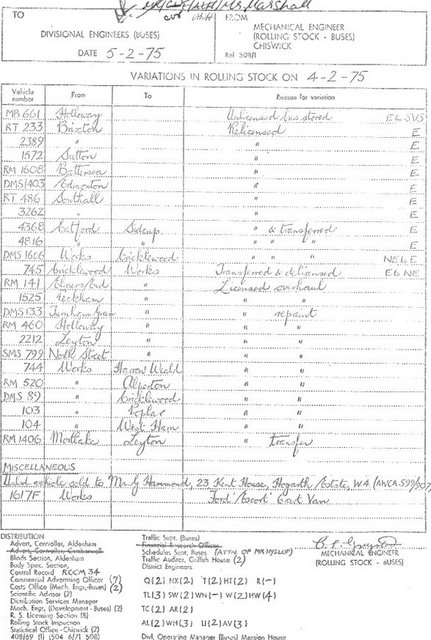 TO
FROM
DIVISIONAL ENGINEERS (BUSES)
MECHANICAL ENGINEER
(ROLLING STOCK - BUSES)
CHISWICK
DATE 5-2-75
VARIATIONS IN ROLLING STOCK ON 4-2-75
Vehicle number From To Reason for variation
MB 661 Holloway Unlicensed bus stored
RT 233 Brixton Relicensed E
2389 " " E
1572 Sutton " E
RM 1608 Battersea " E
DMS 1403 Edmonton " E
RT 486 Southall " E
3262 " " E
4368 Catford Sidcup " & transferred E
4816 " " " " " E
DMS 1606 Works Cricklewood " " " NE & E
745 Cricklewood Works Transferred & delicensed E & NE
RM 141 Elmers End " Licensed overhaul
1525 Peckham " "
DMS 133 Turnham Green " " repaint
RM 460 Holloway " "
2212 Leyton " "
SMS 799 North Street " "
744 Works Harrow Weald "
RM 520 " Alperton "
DMS 89 " Cricklewood "
103 " Poplar "
104 " West Ham "
RM 1406 Mortlake Leyton " transfer
MISCELLANEOUS
sold to Mr G Hammond, 23 Kent House, Hogarth Estate, W.4
1617F Works Ford 'Escort' Van
DISTRIBUTION
Advert. Controller, Aldenham
Advert. Controller, Camberwell
Blinds Section, Aldenham
Body Spec. Section,
Central Record ROOM 34
Commercial Advertising Officer (7)
Costs Office (Mech. Engr. Buses) (2)
Scientific Advisor (2)
Distribution Services Manager
Mech. Engr. (Development - Buses) (2)
R. S. Licensing Section (8)
Rolling Stock Inspection
Statistical Office - Chiswick (2)
Traffic Supt. (Buses)
Financial Research Officer
Schedules Supt. Buses (ATTN OF MR HYSLOP)
Traffic Auditor, Griffith House (2)
District Engineers
Q(2) NX(2) T(2) HT(2) R(-)
TL(3) SW(2) WN(-) W(2) HW(4)
TC(2) AR(2)
AL(2) WH(3) U(2) AV(3)
Dvnl. Operating Manager (Buses) Mansion House
MECHANICAL ENGINEER
(ROLLING STOCK - BUSES)